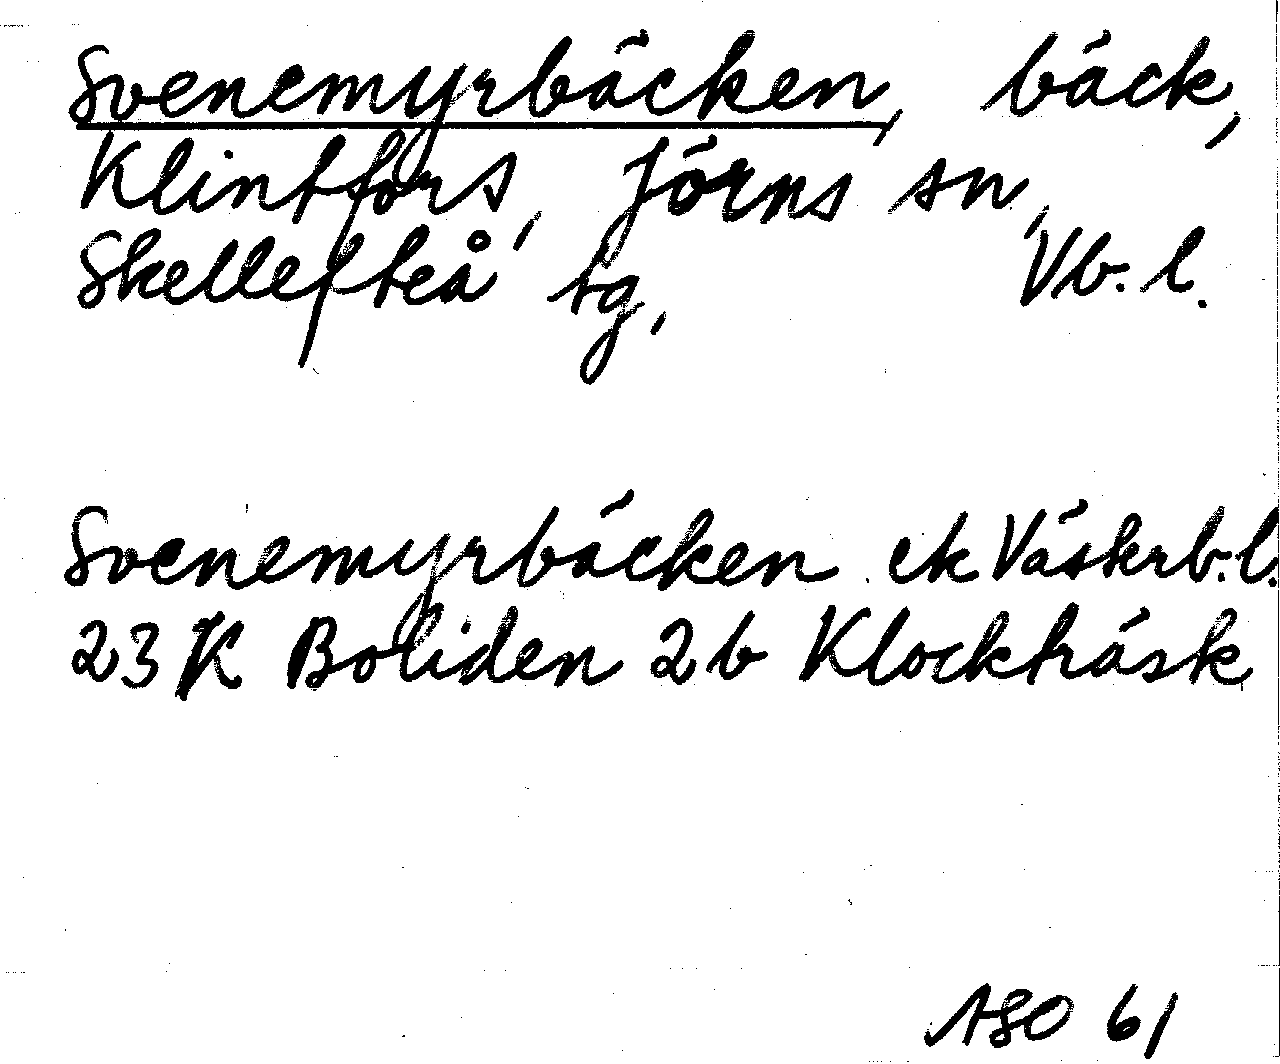 Svenemyrbäcken, bäck,
Klintfors, Jörns sn,
Skellefteå tg, Vb. l.
Svenemyrbäcken ek Västerb. l.
23 K Boliden 2 b Klockträsk
ASO 61